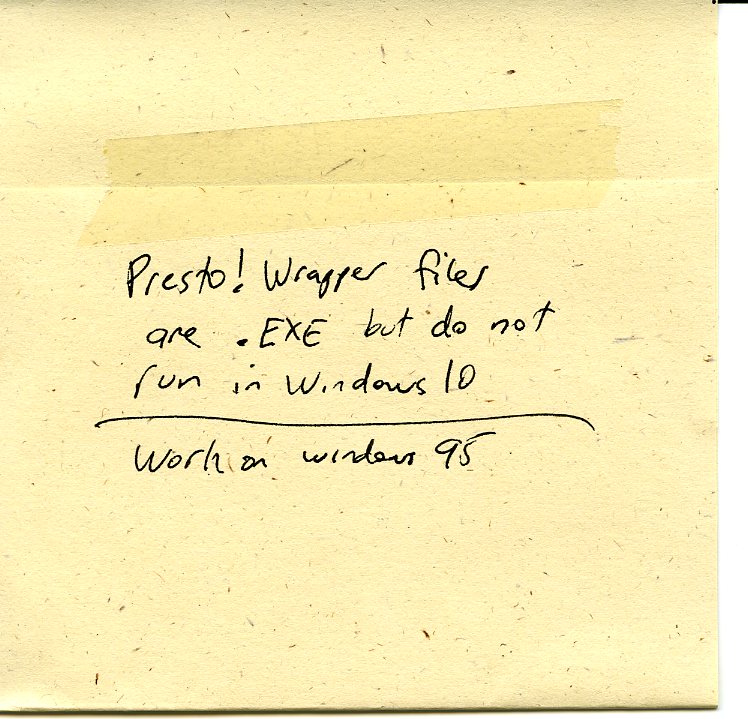 Presto! Wrapper files
are .EXE but do not
run in Windows 10
Work on windows 95